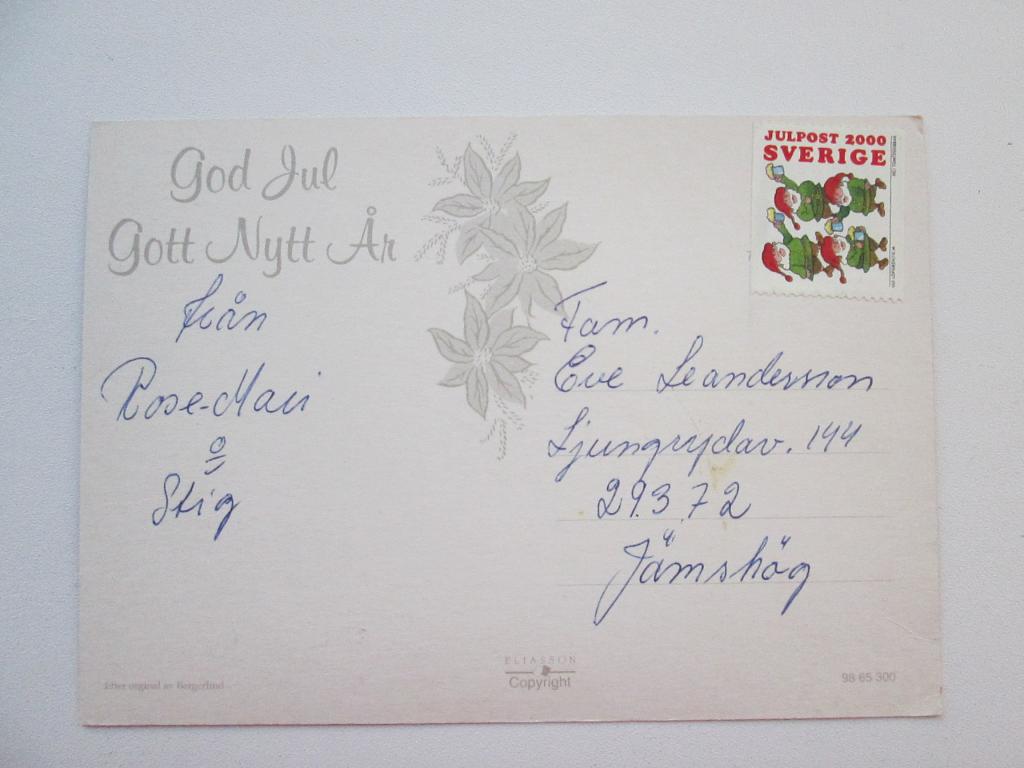 God Jul
Gott Nytt År
från
Rose-Mari
o
Stig
JULPOST 2000
SVERIGE
Fam.
Eve Leandersson
Ljungrydav. 144
293 72
Jämshög
Efter original av Bergerlind
ELIASSON
Copyright
98 65 300